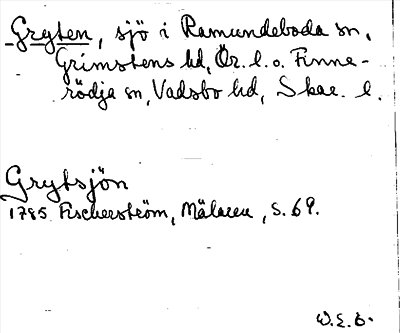 Gryten, sjö i Ramundeboda sn,
Grimstens hd, Ör. l. o. Finne-
rödja sn, Vadsbo hd, Skar. l.
Grytsjön
1785 Fischerström, Mälaren, s. 69.
W.E.6.